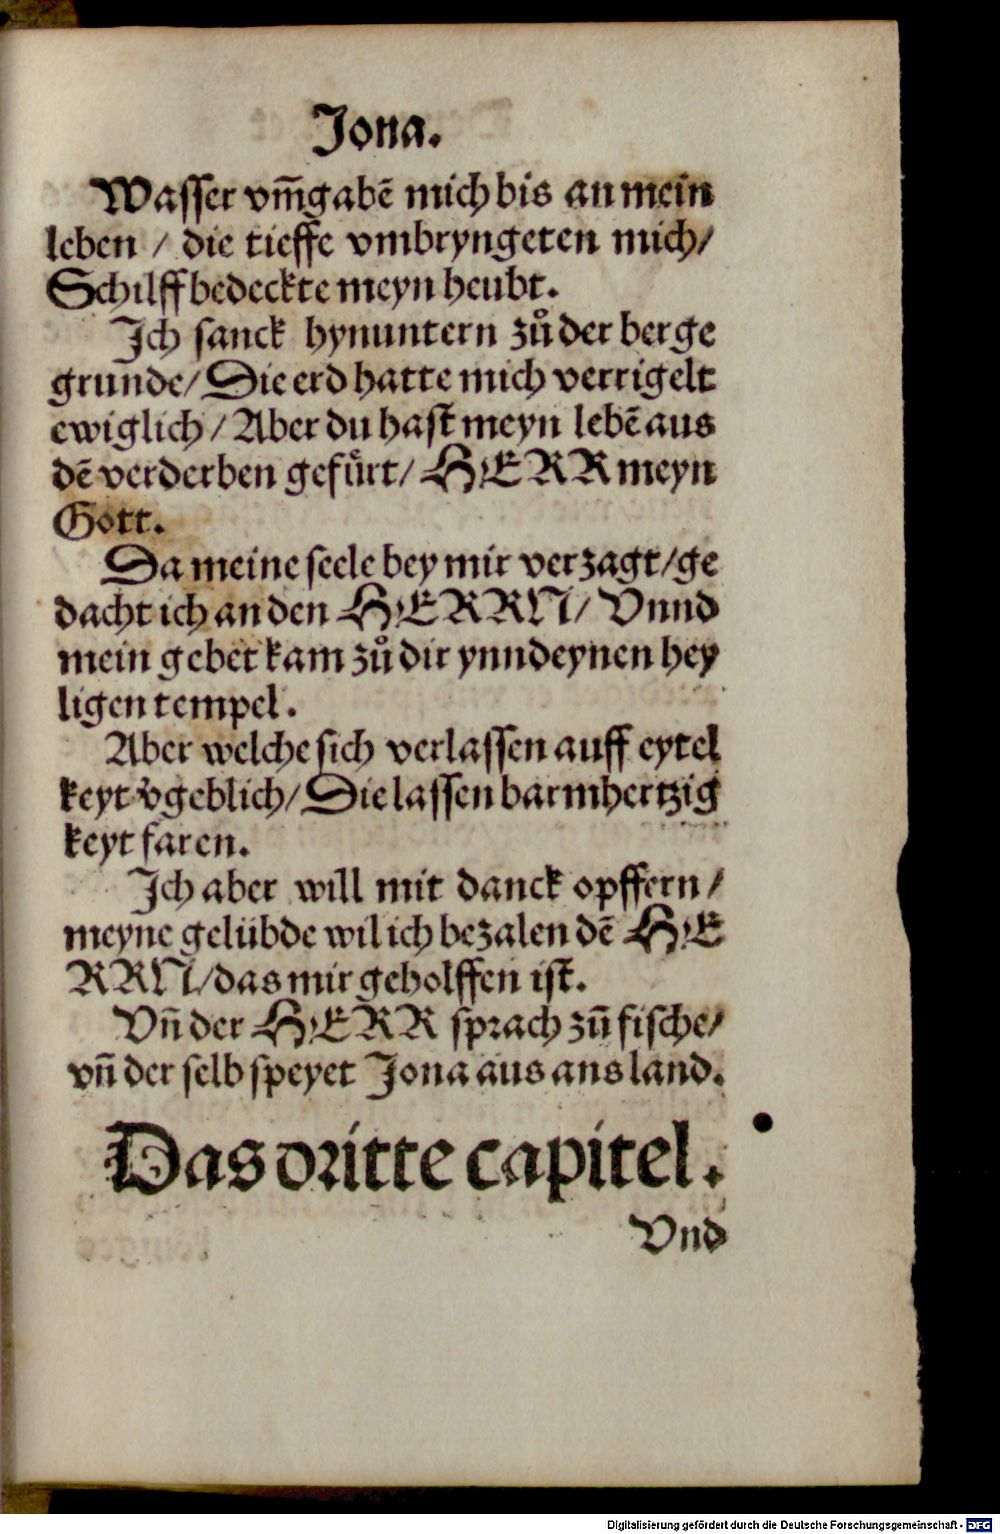 Jona.
Wasser vm̃gabẽ mich bis an mein
leben / die tieffe vmbryngeten mich/
Schilff bedeckte meyn heubt.
Jch sanck hynuntern zů der berge
grunde/ Die erd hatte mich verrigelt
ewiglich / Aber du hast meyn lebẽ aus
dẽ verderben gefůrt/ HERR meyn
Gott.
Da meine seele bey mir verzagt/ ge
dacht ich an den HERRN/ Vnnd
mein gebet kam zů dir ynn deynen hey
ligen tempel.
Aber welche sich verlassen auff eytel
keyt v̊geblich/ Die lassen barmhertzig
keyt faren.
Jch aber will mit danck opffern/
meyne gelübde wil ich bezalen dẽ HE
RRN/ das mir geholffen ist.
Vñ der HERR sprach zũ fische/
vñ der selb speyet Jona aus ans land.
Das dritte capitel.
Vnd
Digitalisierung gefördert durch die Deutsche Forschungsgemeinschaft - DFG